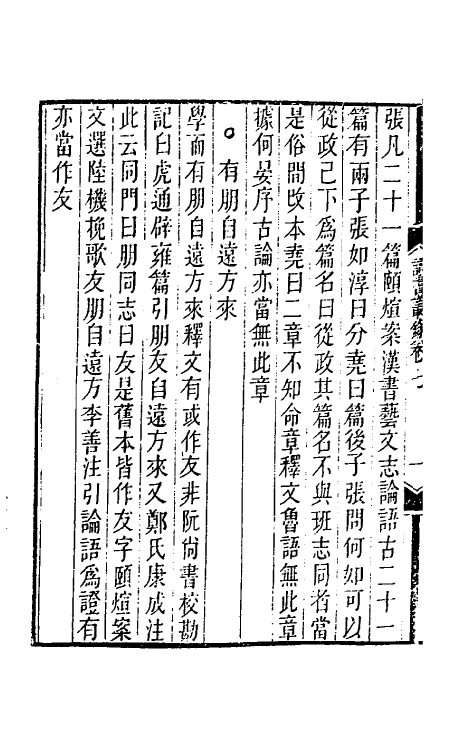 張凡二十一篇頤煊案漢書藝文志論語古二十一
篇有兩子張如淳曰分堯曰篇後子張問何如可以
從政已下爲篇名曰從政其篇名不與班志同者當
是俗間改本堯曰二章不知命章釋文魯語無此章
據何晏序古論亦當無此章
○有朋自遠方來
學而有朋自遠方來釋文有或作友非阮尙書校勘
記曰虎通辟雍篇引朋友自遠方來又鄭氏康成注
此云同門曰朋同志曰友是舊本皆作友字頤煊案
文選陸機挽歌友朋自遠方李善注引論語爲證有
亦當作友
讀書叢錄卷七